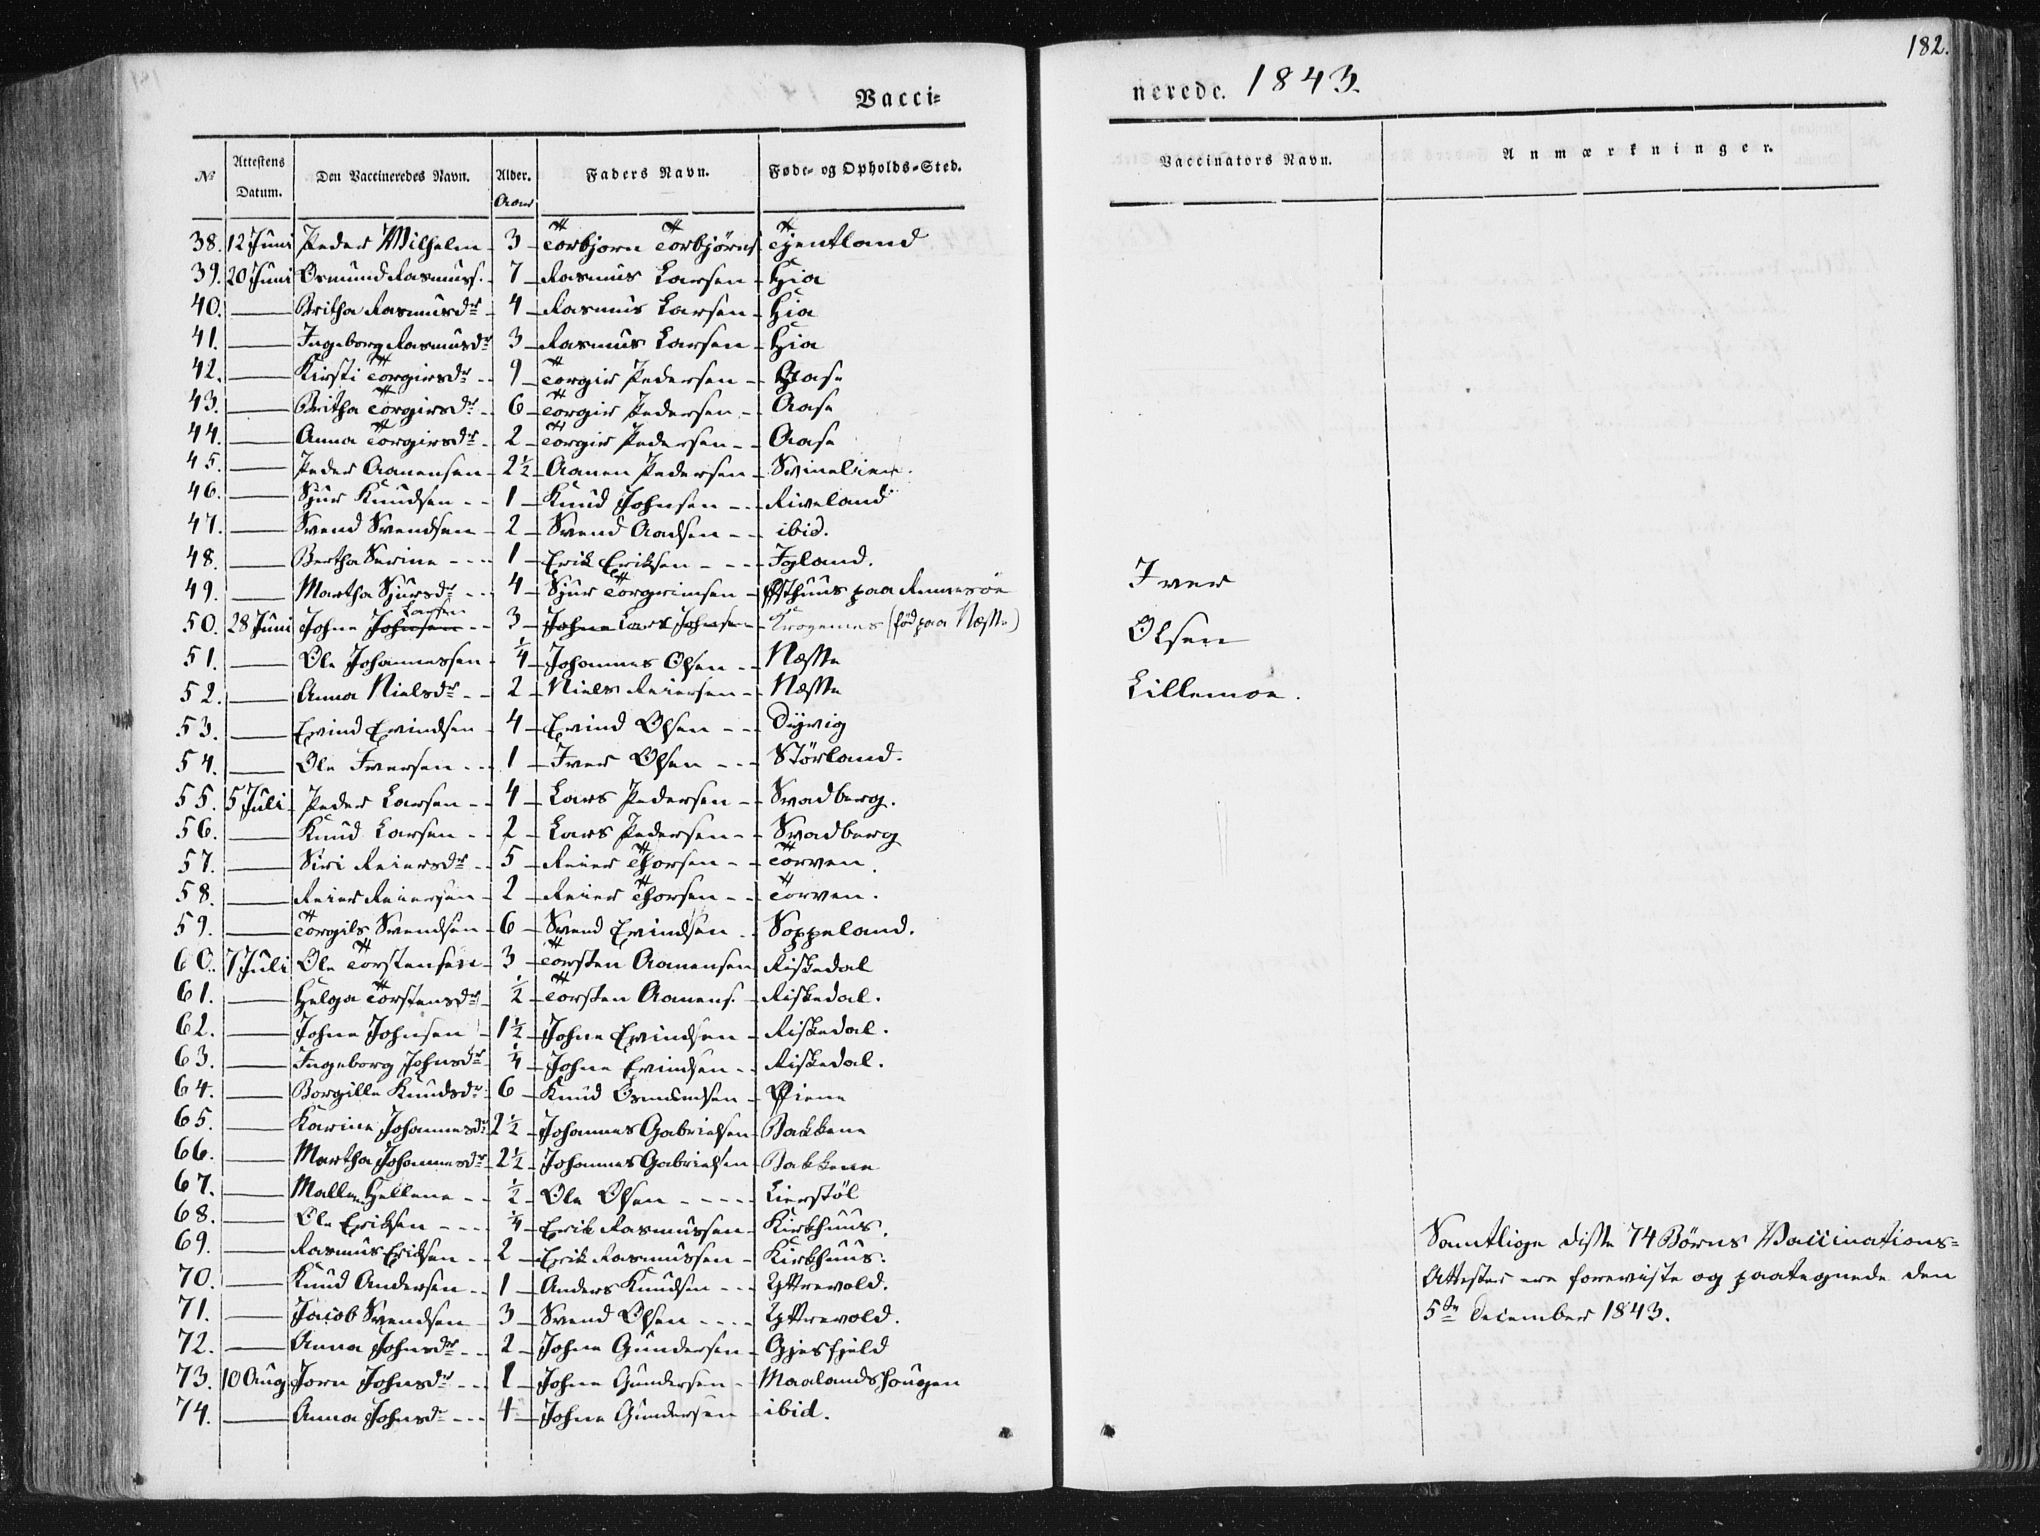 182.
Vacci=
nerede. 1843.
№ Attestens Datum. Den Vaccineredes Navn. Alder. Aar Faders Navn. Føde= og Opholds=Sted.
Vaccinators Navn. Anmærkninger.
38. 12 Juni Peder Wilhelm - 3 - Torbjorn Torbjørns Tjentland
39. 20 Juni Osmund Rasmuss. - 7 - Rasmus Larsen - Hia
40. — Britha Rasmusdr - 4 - Rasmus Larsen - Hia
41. — Ingeborg Rasmusdr 3 - Rasmus Larsen - Hia
42. — Kirsti Torgirsdr - 9 - Torgir Pedersen - Aase
43. — Britha Torgirsdr - 6 - Torgir Pedersen - Aase
44. — Anna Torgirsdr - 2 - Torgir Pedersen - - Aase
45. — Peder Aanensen - 2½ - Aanen Pedersen - Svinelien.
46. — Sjur Knudsen - - 1 - Knud Johnsen - - Riveland
47. — Svend Svendsen - 2 - Svend Aadsen - - ibid.
48. — Bertha Serine - - - 1 - Erik Eriksen - - - Fogland.
49. — Martha Sjursdr - - 4 - Sjur Torgrimsen - Østhuus paa Rennesøe
50. 28 Juni Johne Johnsen Larsen - - 3 - Johne Lars Johnsen - Krogenes (fød paa Næsse)
51. — Ole Johannessen - ¼ - Johannes Olsen - - Næsse
52. — Anna Nielsdr - - 2 - Niels Reiersen - - Næsse
53. — Evind Evindsen - 4 - Evind Olsen - - - Dyvig
54. — Ole Iversen - - - 1 - Iver Olsen - - - Størland.
55. 5 Juli Peder Larsen - - 4 - Lars Pedersen - - Svadberg.
56. — Knud Larsen - - 2 - Lars Pedersen - - Svadberg
57. — Siri Reiersdr - - 5 - Reier Thorsen - - Torven.
58. — Reier Reiersen - 2 - Reier Thorsen - - Torven.
59. — Torgils Svendsen - 6 - Svend Evindsen - - Soppeland.
60. 7 Juli Ole Torstensen - 3 - Torsten Aanensen Riskedal
61. — Helga Torstensdr - ½ - Torsten Aanens. - Riskedal.
62. — Johne Johnsen - 1½ - Johne Evindsen - Riskedal.
63. — Ingeborg Johnsdr ¼ - Johne Evindsen - - Riskedal.
64. — Borgille Knudsdr 6 - Knud Osmundsen -
65. — Karine Johannesdr 2½ - Johannes Gabrielsen - Bakkene
66. — Martha Johannesdr 2½ - Johannes Gabrielsen - Bakkene
67. — Mallene Hellene - - ½ - Ole Olsen - - - - - Lierstøl
68. — Ole Eriksen - - - ¼ - Erik Rasmussen - Kirkhuus.
69. — Rasmus Eriksen - - 2 - Erik Rasmussen - Kirkhuus.
70. — Knud Andersen - - 1 - Anders Knudsen - - - Yttrevold.
71. — Jacob Svendsen 3 - Svend Olsen - - - - Yttrevold.
72. — Anna Johnsdr - - 2 - Johne Gundersen - Gjesfjeld
73. 10 Aug Jorn Johnsdr - - 1 - Johne Gundersen - Maalandshougen
74. — Anna Johnsdr - - - 4 - Johne Gundersen - ibid.
Iver
Olsen
Lillemoe.
Samtlige disse 74 Børns Vaccinations=
Attester ere foreviste og paategnede den
5te December 1843.